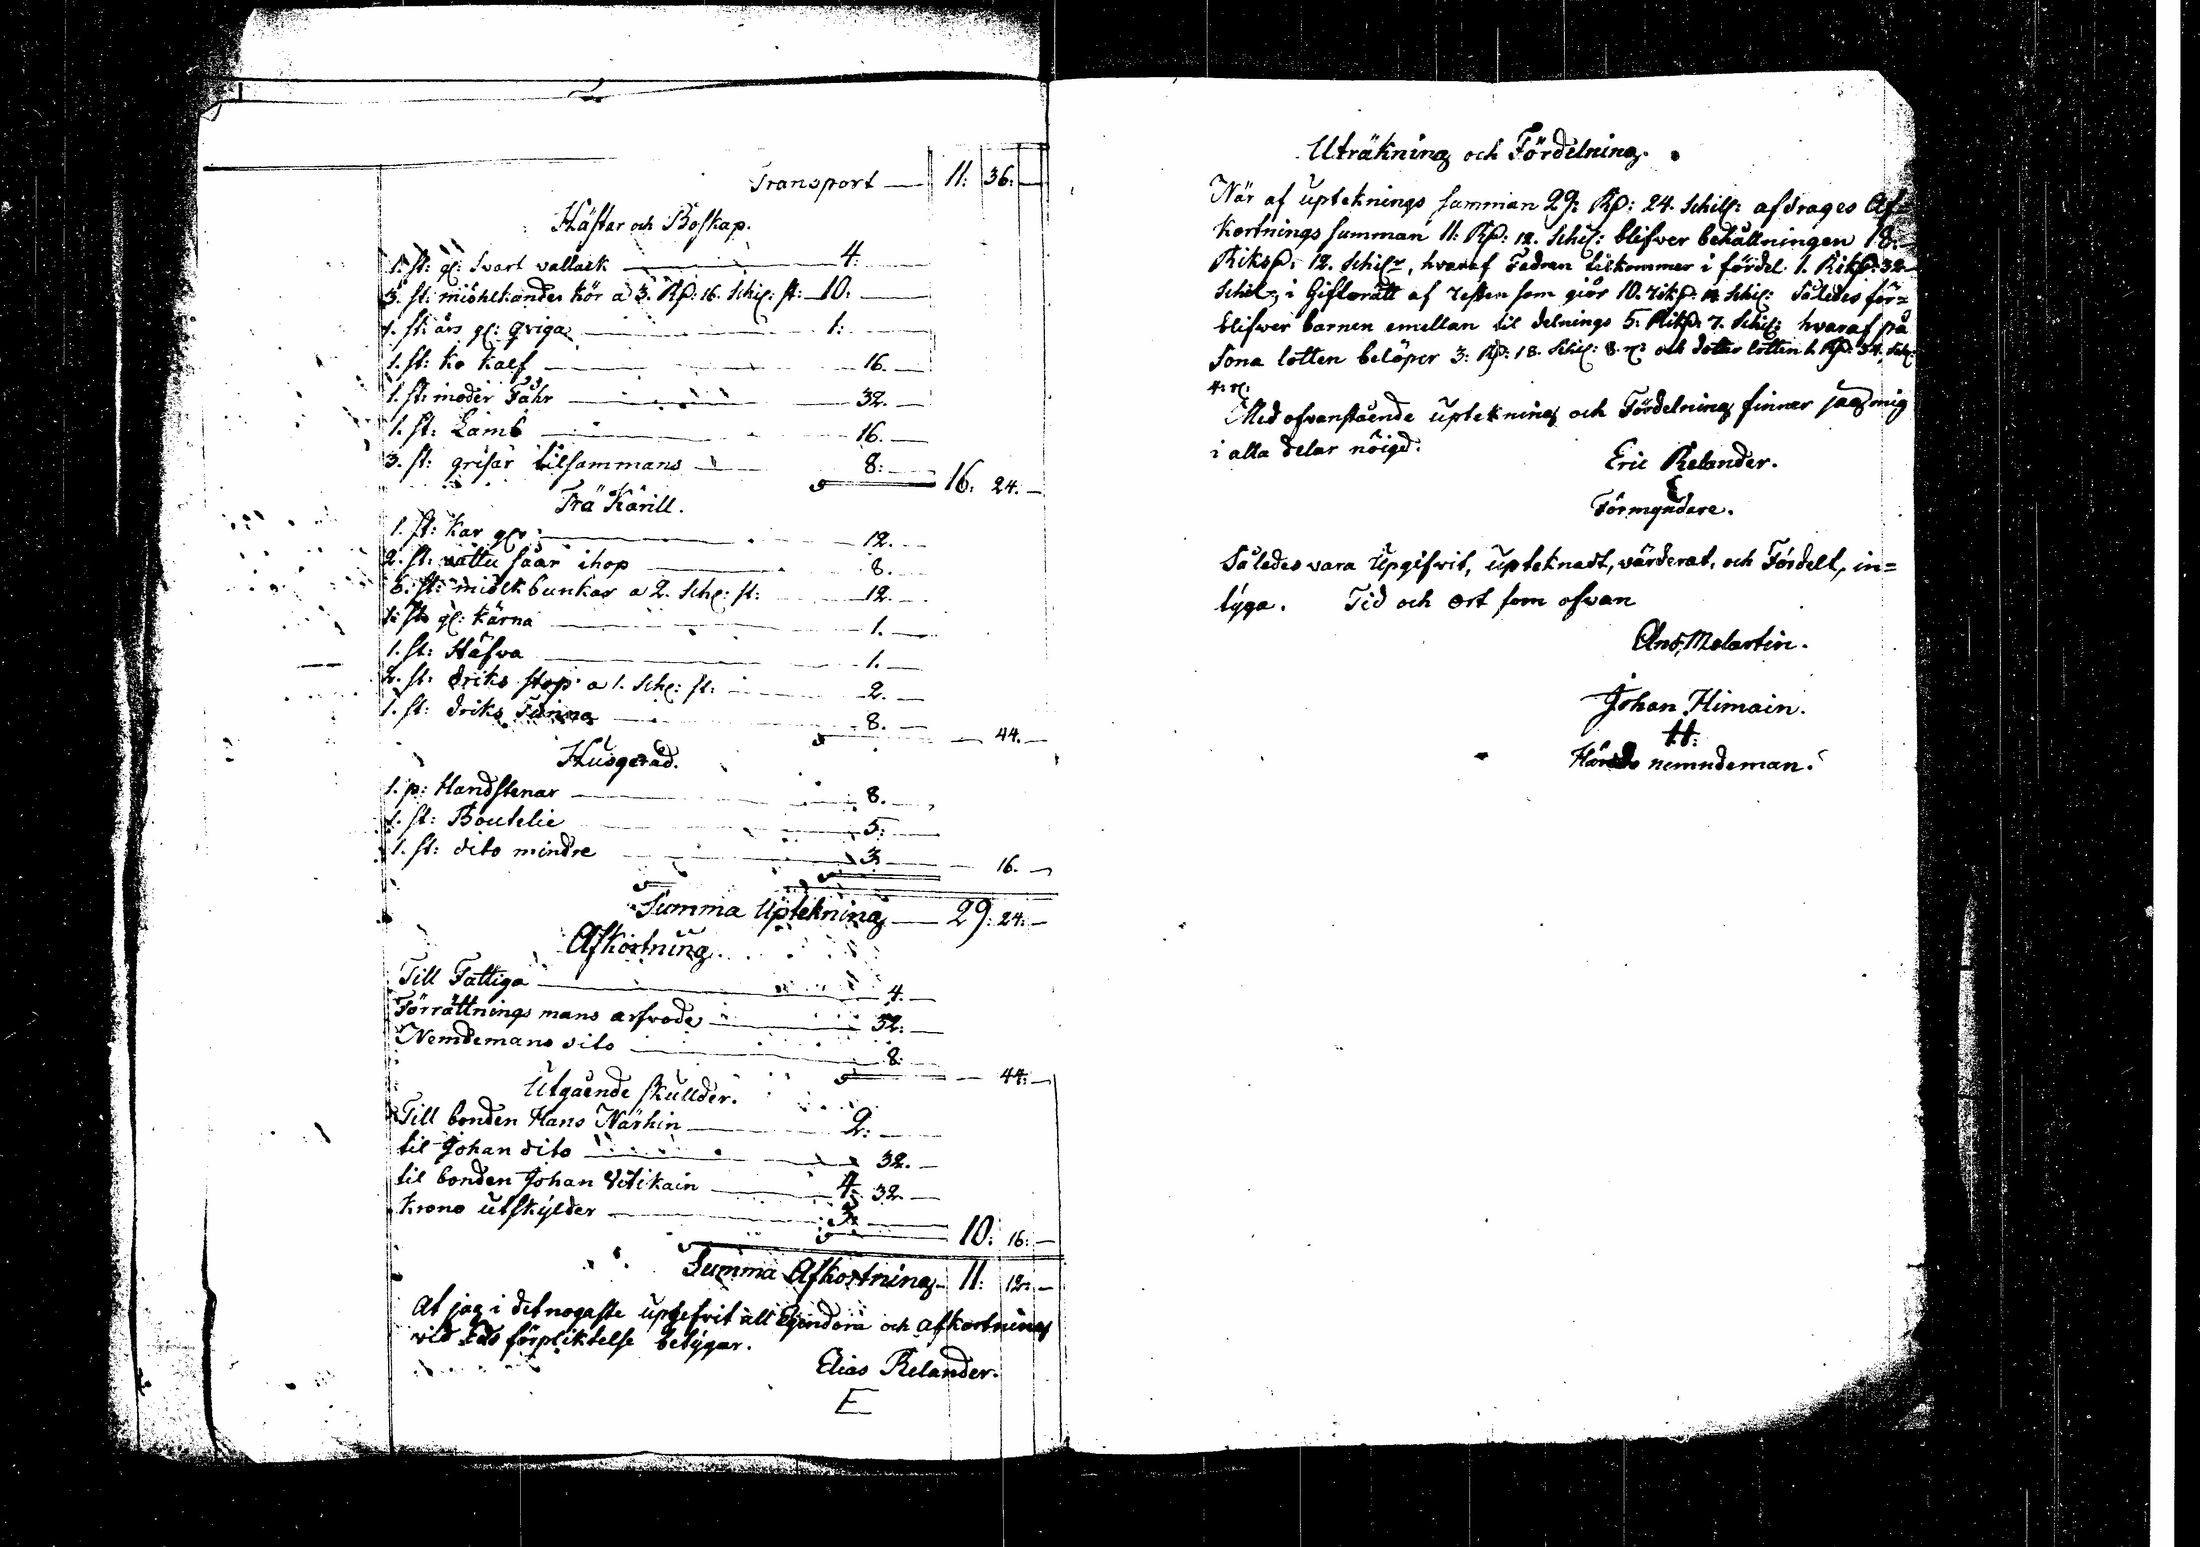 Transport — 11: 36: —
Hästar och Boskap.
1. st: gl: Svart vallack — 4: —
3. st: miöhlkandes kör a 3. Rd: 16. Schil: st: — 10: —
1. st: års gl: qviga — 1: —
1. st: ko kalf — 16. —
1. st: moder Fåhr — 32. —
1. st: Lamb — 16. —
3. st: grisar tilsammans — 8: — 16: 24. —
Trä Kärill.
1. st: kar gl: — 12. —
2. st: vattu såar ihop — 8. —
6. st: miölk bunkar a 2. Schl: st: — 12. —
1. st: gl: kärna — 1. —
1. st: Stäfva — 1. —
2. st: driks stop a 1. Schl: st: — 2. —
1. st: driks Tunna — 8. — — 44. —
Husgeråd.
1. p: Handstenar — 8. —
1. st: Boutelie — 5: —
1. st: dito mindre — 3. — 16. —
Summa Upteknings — 29: 24: —
Afkortning
Till Fattiga — 4. —
Förrättnings mans arfvode — 32: —
Nemdemans dito — 8. — — 44: —
Utgående skullder.
Till bonden Hans Närhin — 2: —
til Johan dito — 32. —
til bonden Johan Vitikain — 4: 32. —
Krono utskylder — 3: — 10: 16: —
Summa Afkortning — 11: 12: —
At jag i det nogaste upgefvit all Egendom och afkortning
vid Eds förpliktelse betygar.
Elias Relander.
E
Uträkning och Fördelning.
När af upteknings summan 29: Rd: 24. Schill: afdrages Af=
kortnings summan 11: Rd: 12. Schil: blifver behållningen 18:
Riksd: 12. Schilr, hvaraf Fadren tilkommer i fördel 1. Riksd: 32
Schil, i Giftorätt af resten som giör 10. riksd: Schil: Således för=
blifver barnen emellan til delnings 5: Riksd: 7. Schil: hvaraf på
Sona lotten belöper 3: Rd: 18. Schil: 8. r: och dotter lotten 1. Rd: 34. Schl:
4: r:
Med ofvanstående uptekning och Fördelning finner jag mig
i alla delar nöigd.
Eric Relander.
Förmyndare.
Således vara Upgifvit, upteknadt, värderat, och Fördelt, in=
tyga. Tid och ort som ofvan
And: Malartin.
Johan Himain.
H:
Härads nemndeman.